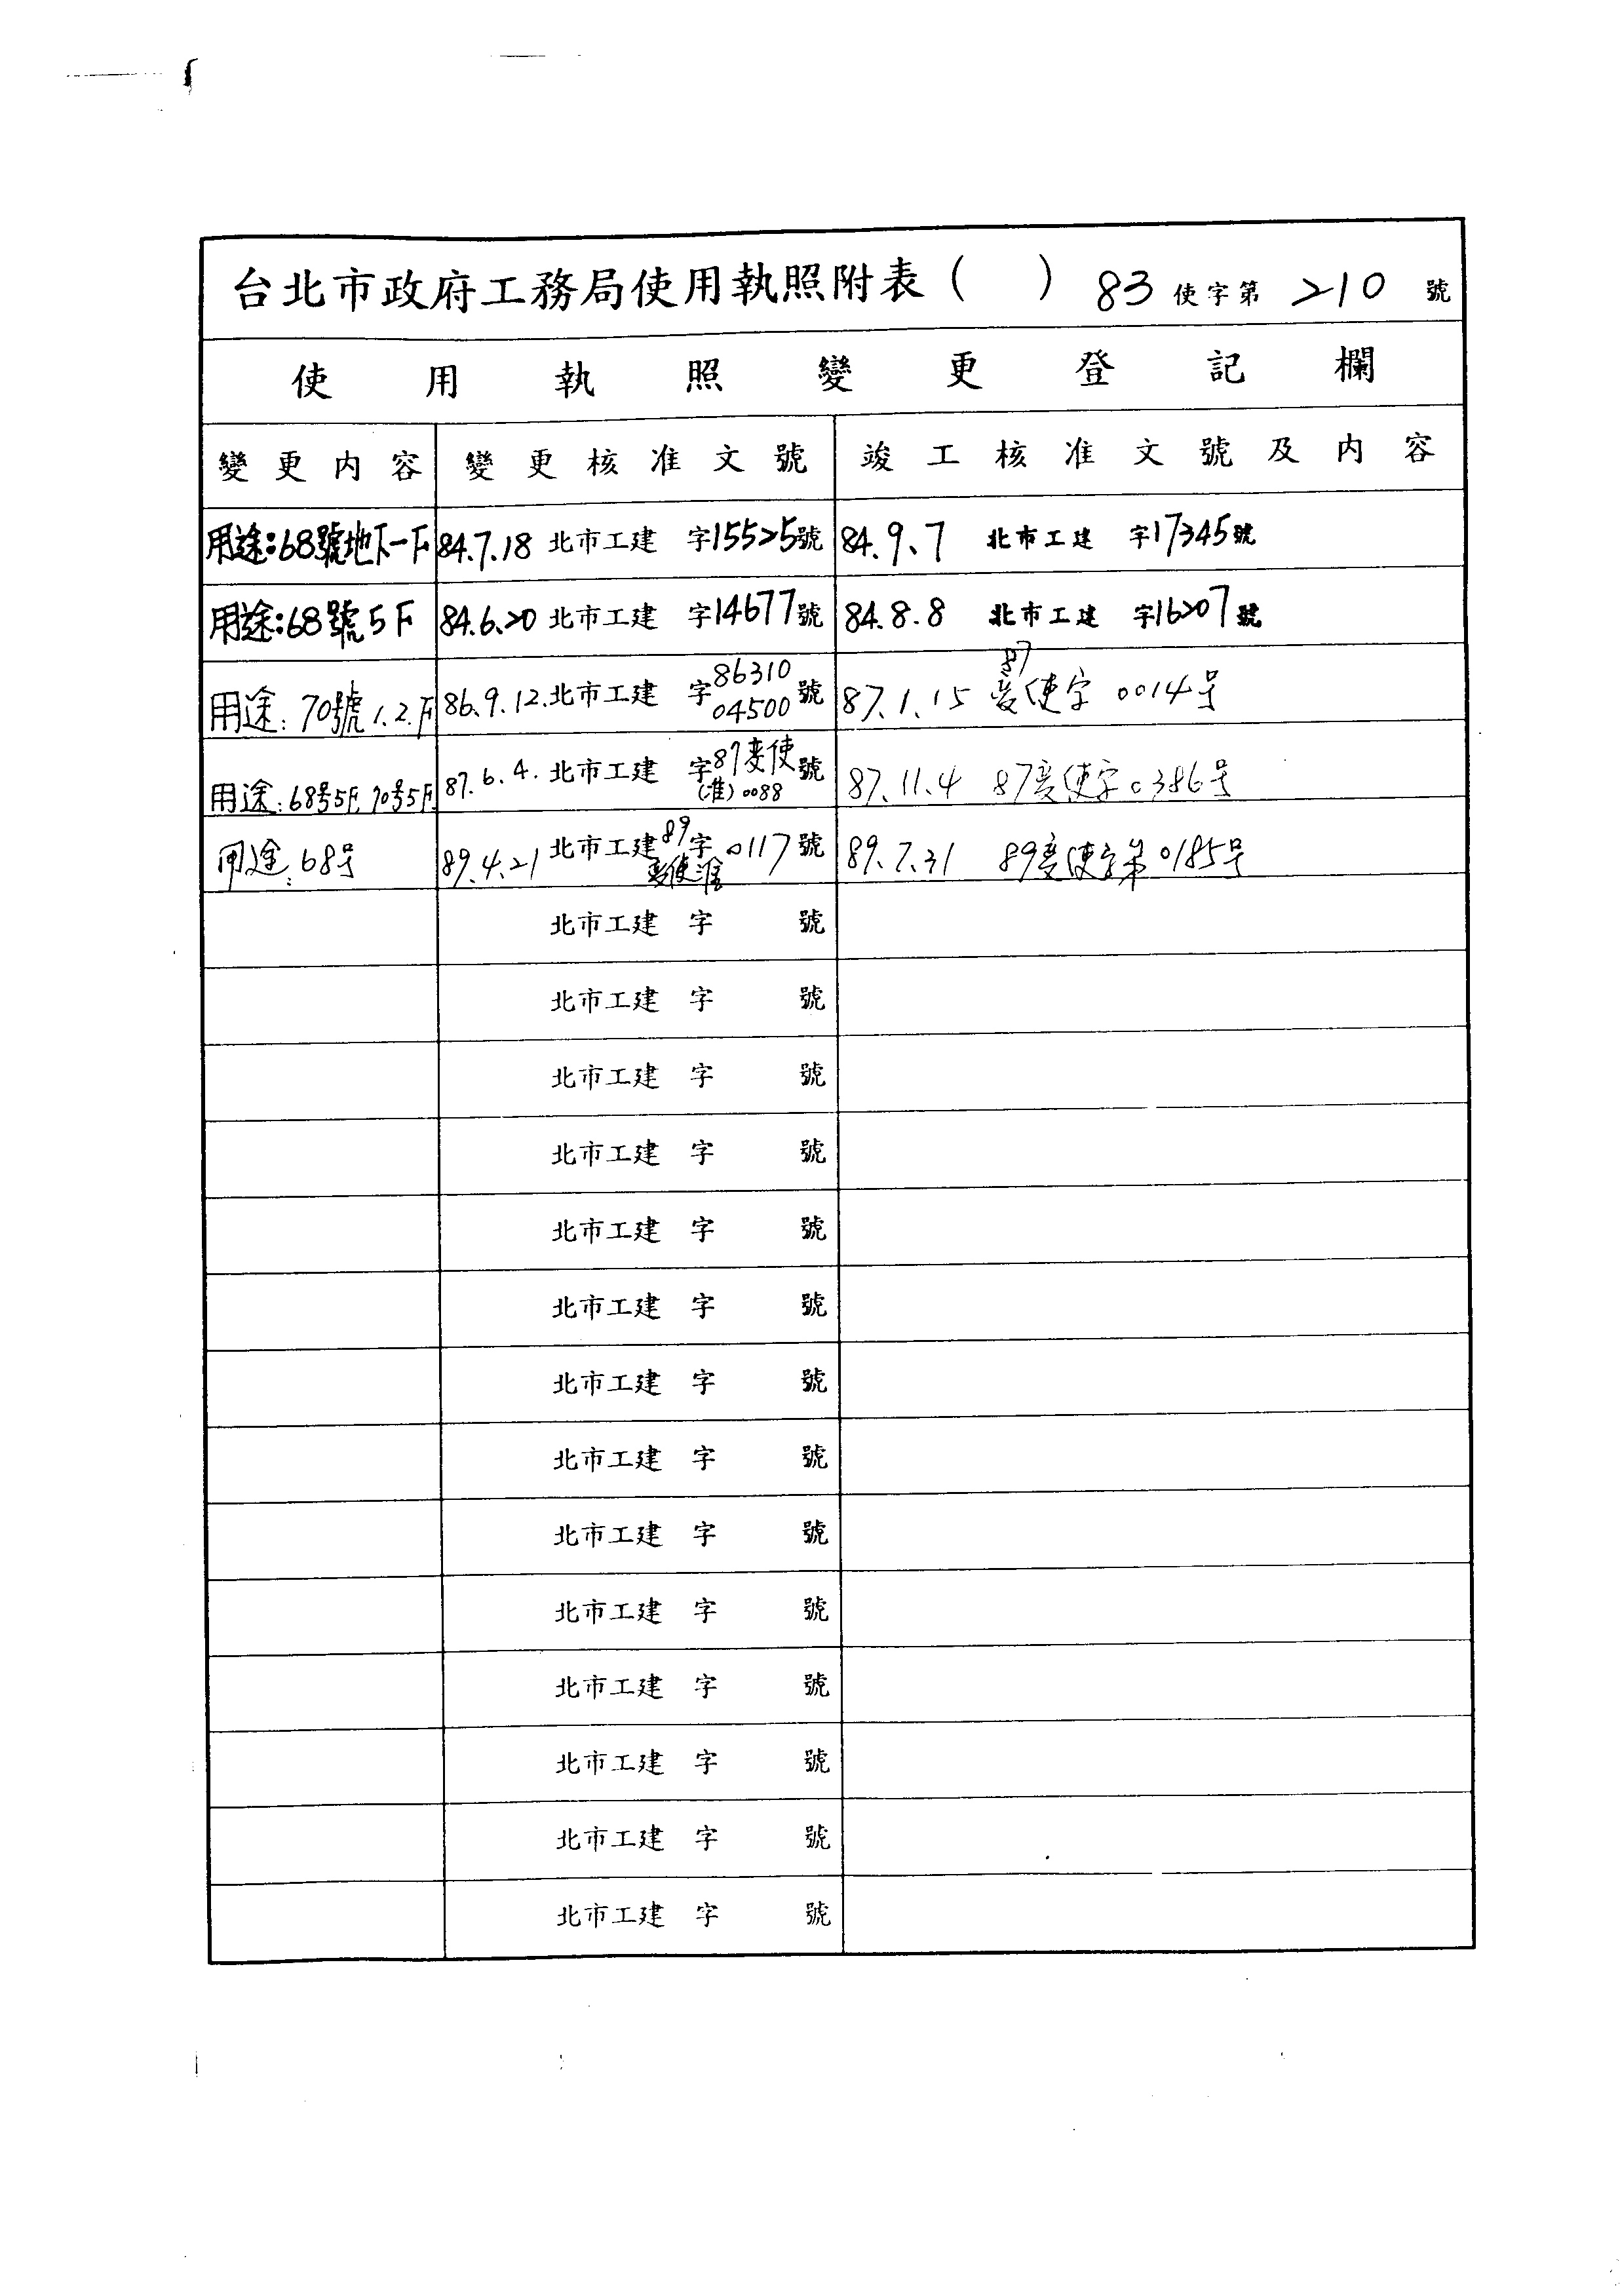 台北市政府工務局使用執照附表（　）　83使字第 210 號
使用執照變更登記欄
變更內容　變更核准文號　竣工核准文號及內容
用途:68號地下一F　84.7.18 北市工建　字15525號　84.9.7 北市工建　字17345號
用途:68號5F　84.6.20 北市工建　字14677號　84.8.8 北市工建　字16207號
用途:70號1.2.F　86.9.12.北市工建　字8631004500號　87.1.15 87変使字 0014号
用途:68号5F,70号5F　87.6.4. 北市工建　字87変使(准)0088號　87.11.4 87変使字0386号
用途:68号　89.4.21 北市工建　89変使准字0117號　89.7.31 89変使字第0185号
北市工建　字　號
北市工建　字　號
北市工建　字　號
北市工建　字　號
北市工建　字　號
北市工建　字　號
北市工建　字　號
北市工建　字　號
北市工建　字　號
北市工建　字　號
北市工建　字　號
北市工建　字　號
北市工建　字　號
北市工建　字　號